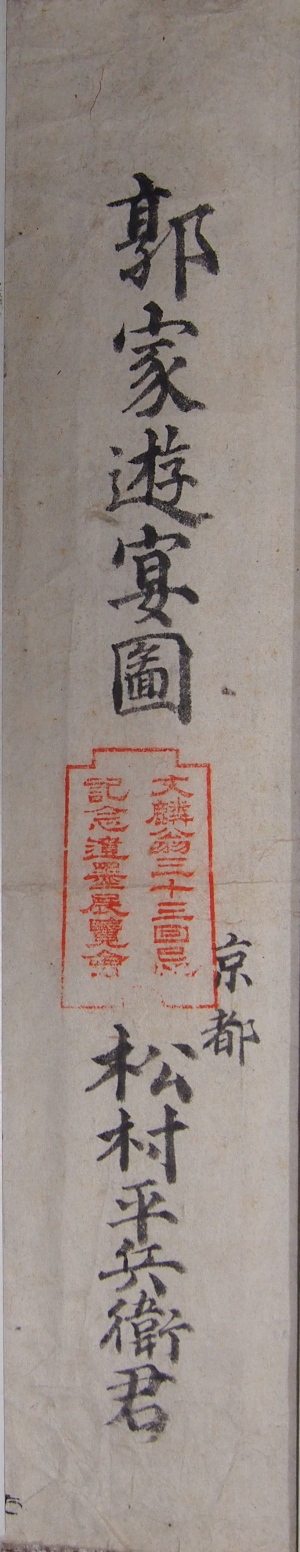 郭家遊宴圖
文麟翁三十三回忌
記念遺墨展覽會
京都
松村平兵衛君